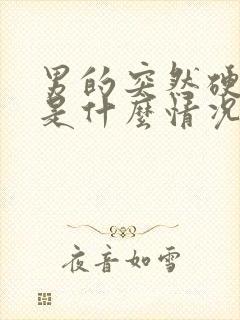 男的突然硬
是什麼情况
夜音如雪